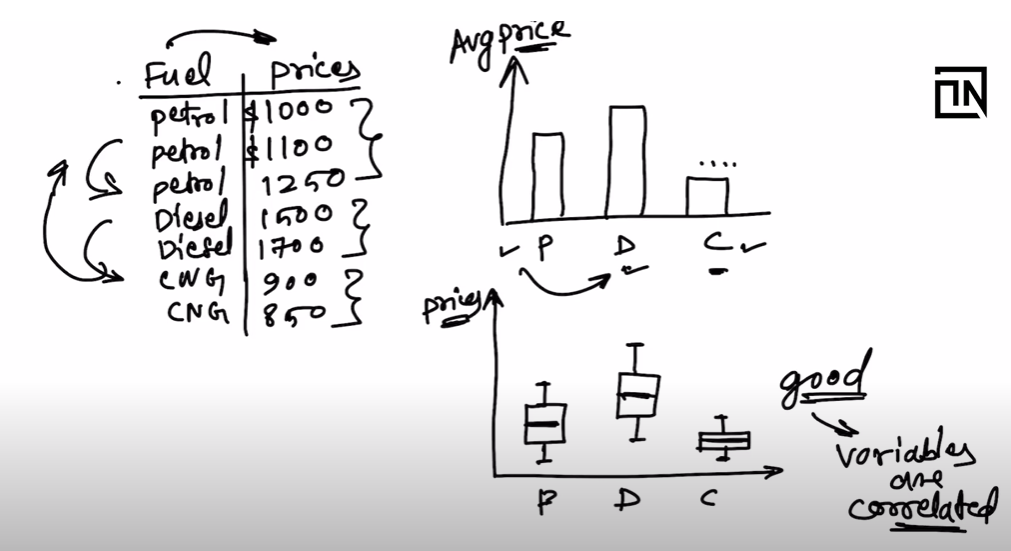 Fuel Prices
petrol $1000
petrol $1100
petrol 1250
Diesel 1500
Diesel 1700
CNG 900
CNG 850
Avg price
....
P D C
prices
P D C
good
variables
are
correlated